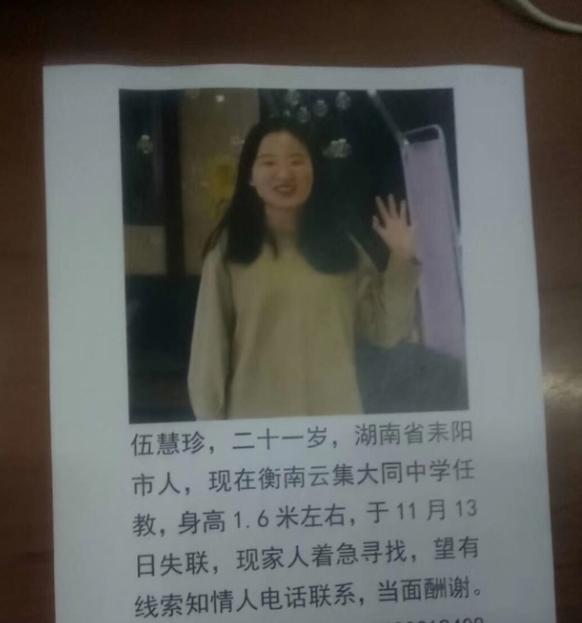 伍慧珍，二十一岁，湖南省耒阳
市人，现在衡南云集大同中学任
教，身高1.6米左右，于11月13
日失联，现家人着急寻找，望有
线索知情人电话联系，当面酬谢。